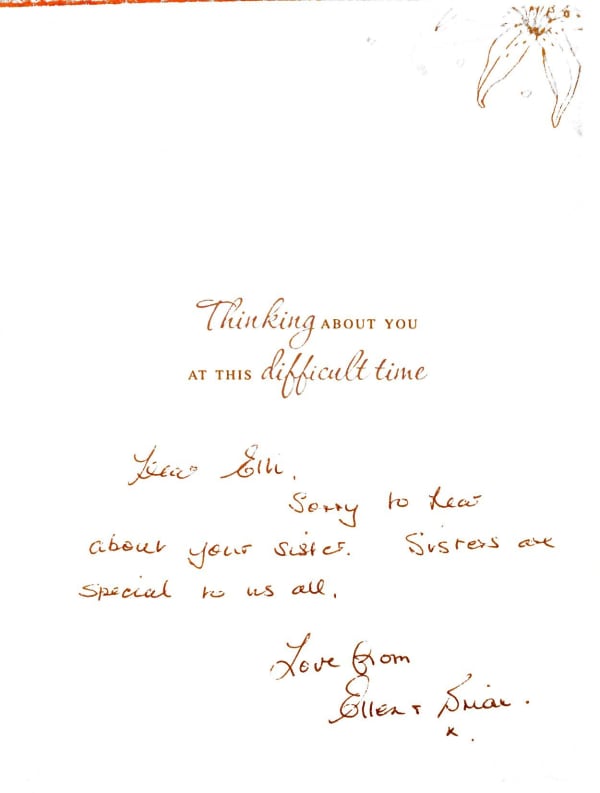 Thinking ABOUT YOU
AT THIS difficult time
Dear Elli.
Sorry to hear
about your sister. Sisters are
special to us all.
Love from
Ellen + Brian.
x.